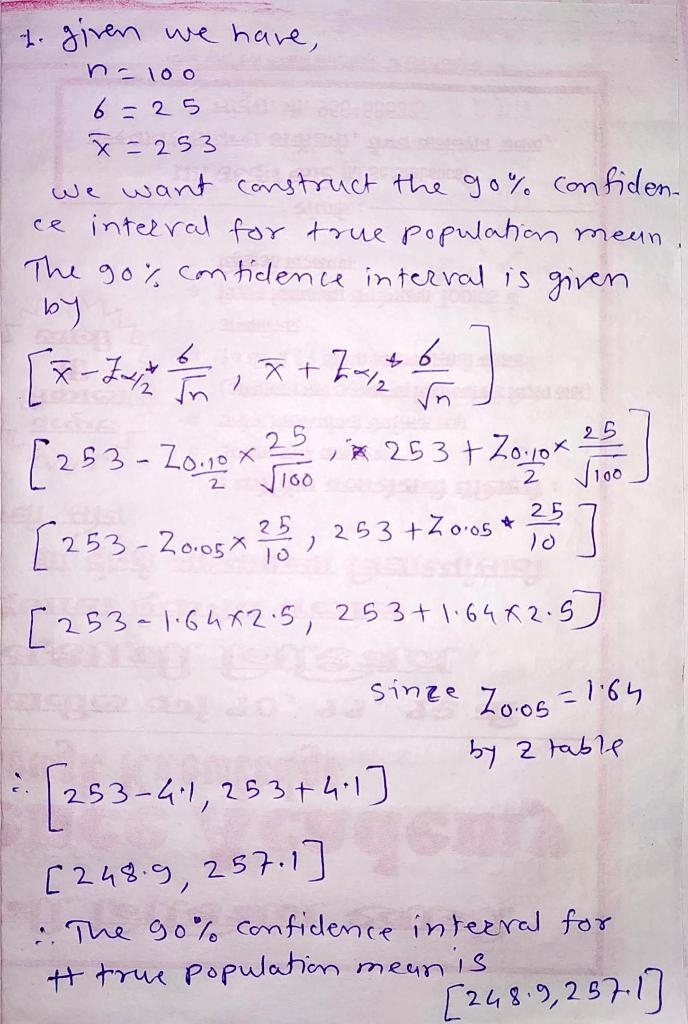 1. given we have,
n = 100
6 = 25
x̄ = 253
we want construct the 90% confiden-
ce interval for true population mean.
The 90% confidence interval is given
by
[x̄ - Zα/2 * 6/√n , x̄ + Zα/2 * 6/√n]
[253 - Z0.10/2 × 25/√100 , 253 + Z0.10/2 × 25/√100]
[253 - Z0.05 × 25/10 , 253 + Z0.05 * 25/10]
[253 - 1.64×2.5, 253 + 1.64×2.5]
sinze Z0.05 = 1.64
by z table
∴ [253-4.1, 253+4.1]
[248.9, 257.1]
∴ The 90% confidence interval for
tt true population mean is
[248.9, 257.1]